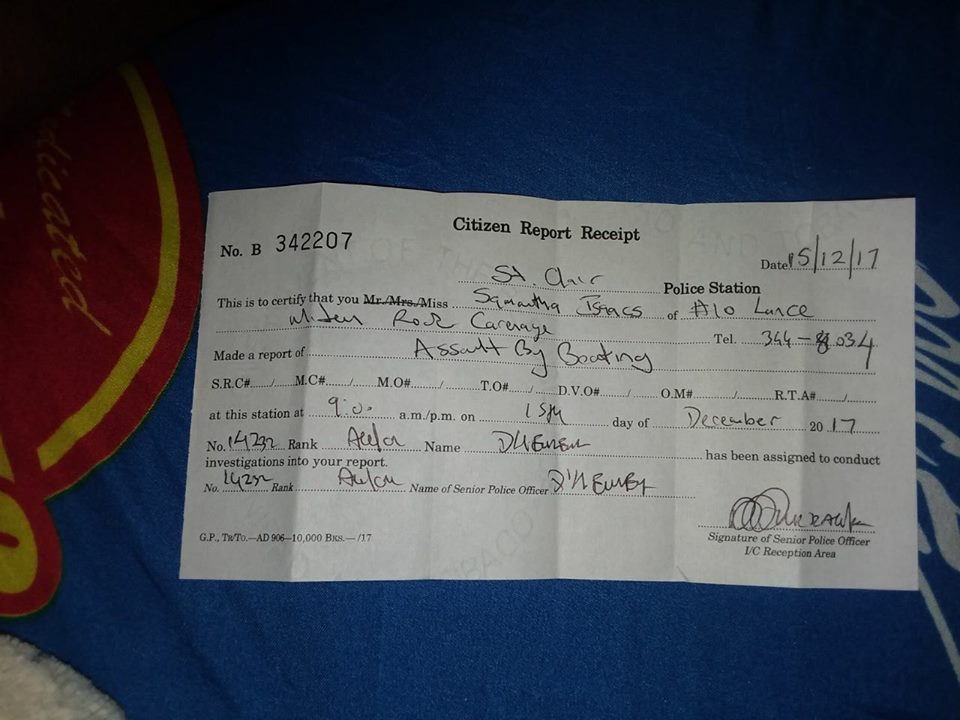 dicated
Citizen Report Receipt
No. B 342207
Date 15/12/17
St. Clair Police Station
This is to certify that you Mr./Mrs./Miss Samantha Isaacs of #10 Lance
Rock Carenage Tel. 344-8034
Made a report of Assault By Beating
S.R.C#....../...... M.C#....../...... M.O#....../...... T.O#....../...... D.V.O#....../...... O.M#....../...... R.T.A#....../......
at this station at 9:00 a.m./p.m. on 15th day of December 2017
No. 14232 Rank Name has been assigned to conduct
investigations into your report.
No. 14232 Rank Name of Senior Police Officer
Signature of Senior Police Officer
I/C Reception Area
G.P., TR/TO.—AD 906—10,000 BKS.— /17